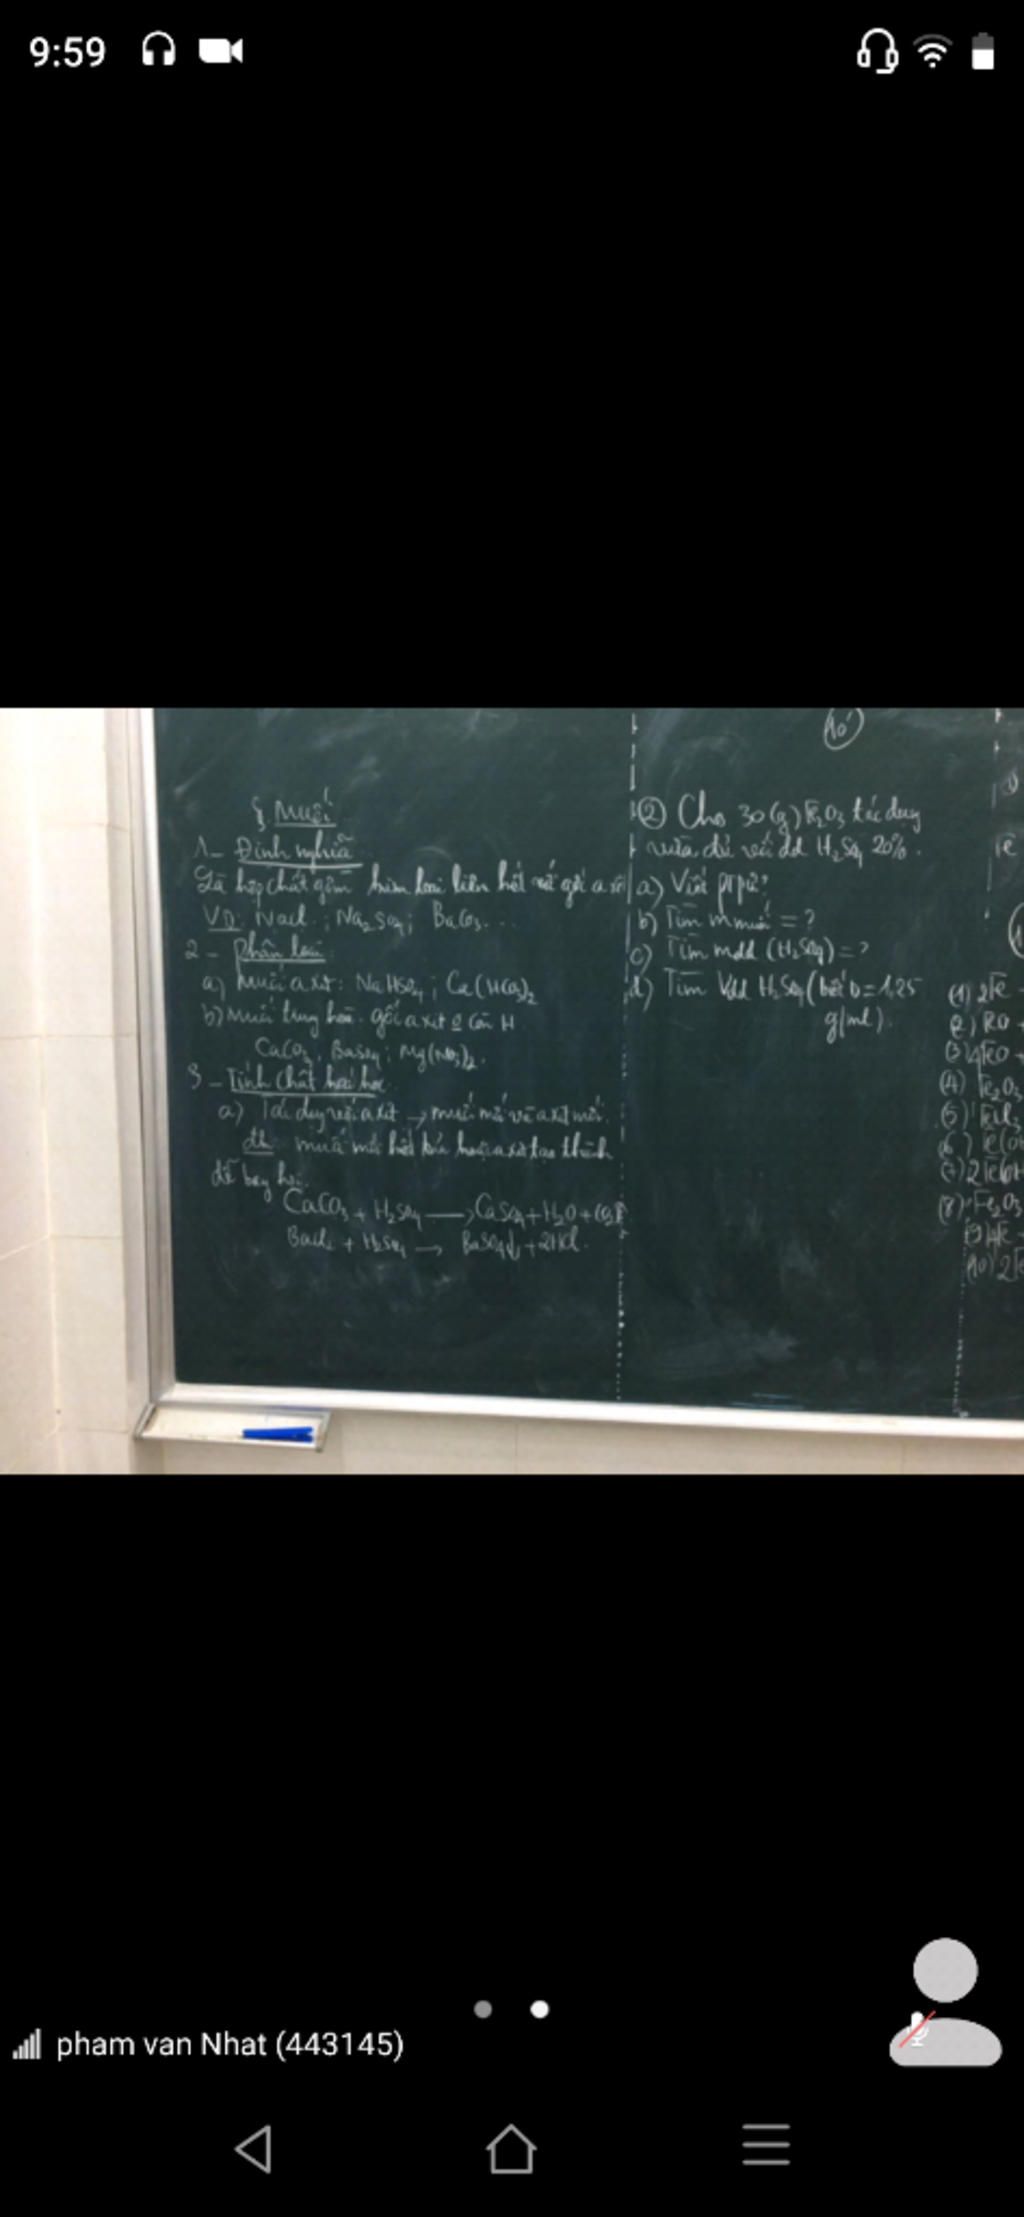 9:59
§. Muối
1- Định nghĩa
Là hợp chất gồm kim loại liên kết với gốc axit
VD: NaCl; Na2SO4; BaCO3...
2- Phân loại
a) Muối axit: NaHSO4; Ca(HCO3)2
b) Muối trung hoà. gốc axit o còn H
CaCO3, BaSO4; Mg(NO3)2.
3- Tính chất hoá học
a) Tác dụng với axit → muối mới và axit mới.
đk muối mới kết tủa hoặc axit tạo thành
dễ bay hơi.
CaCO3 + H2SO4 → CaSO4 + H2O + CO2↑
BaCl2 + H2SO4 → BaSO4↓ + 2HCl.
10'
② Cho 30(g) Fe2O3 tác dụng
vừa đủ với dd H2SO4 20%.
a) Viết ptpư?
b) Tìm m muối = ?
c) Tìm mdd (H2SO4) = ?
d) Tìm Vdd H2SO4 (biết D = 1,25
g/ml).
(1) 2Fe
(2)
(3) 4FeO
(4) Fe2O3
(5)
(6)
(7)
(8) Fe2O3
(9)
(10)
pham van Nhat (443145)